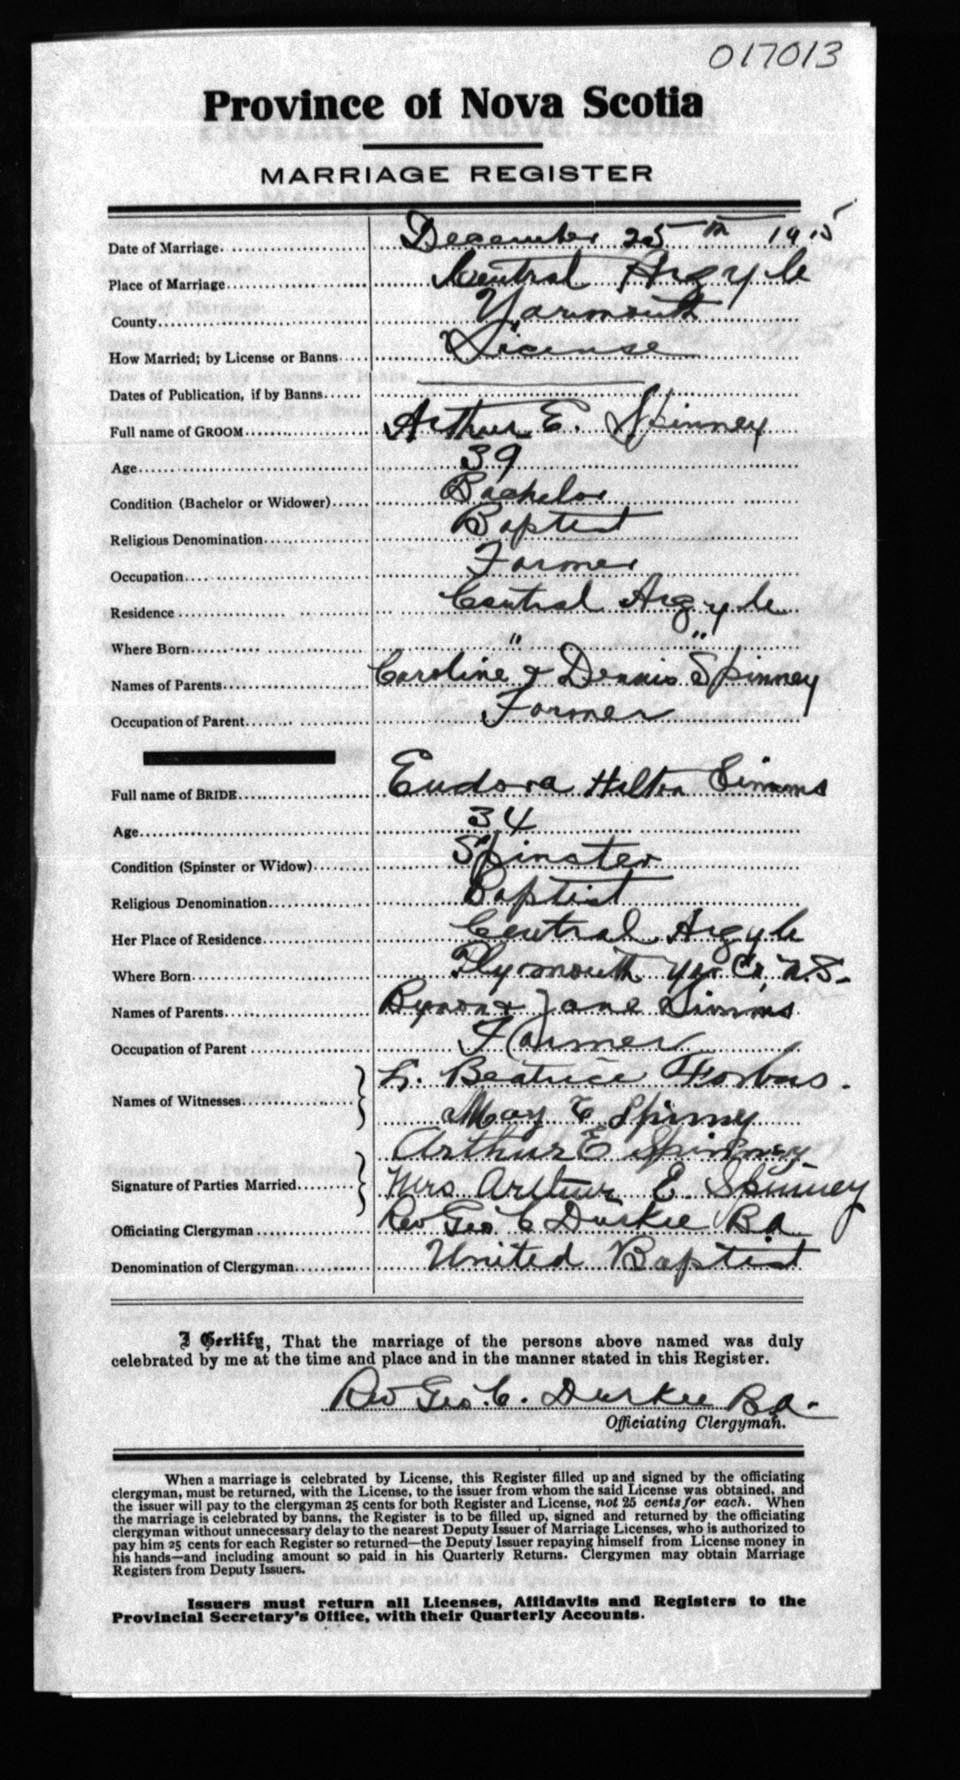 017013
Province of Nova Scotia
MARRIAGE REGISTER
Date of Marriage December 25th 1915
Place of Marriage Central Argyle
County Yarmouth
How Married; by License or Banns License
Dates of Publication, if by Banns
Full name of GROOM Arthur E. Spinney
Age 39
Condition (Bachelor or Widower) Bachelor
Religious Denomination Baptist
Occupation Farmer
Residence Central Argyle
Where Born " "
Names of Parents Caroline & Dennis Spinney
Occupation of Parent Farmer
Full name of BRIDE Eudora Hilton Simms
Age 34
Condition (Spinster or Widow) Spinster
Religious Denomination Baptist
Her Place of Residence Central Argyle
Where Born Plymouth Yar Co, N.S.
Names of Parents Byron & Jane Simms
Occupation of Parent Farmer
Names of Witnesses L. Beatrice Forbes.
May E Spinney
Signature of Parties Married Arthur E Spinney
Mrs Arthur E. Spinney
Officiating Clergyman Rev Geo C Durkee B A
Denomination of Clergyman United Baptist
I Certify, That the marriage of the persons above named was duly
celebrated by me at the time and place and in the manner stated in this Register.
Rev Geo. C. Durkee B.A.
Officiating Clergyman.
When a marriage is celebrated by License, this Register filled up and signed by the officiating
clergyman, must be returned, with the License, to the issuer from whom the said License was obtained, and
the issuer will pay to the clergyman 25 cents for both Register and License, not 25 cents for each. When
the marriage is celebrated by banns, the Register is to be filled up, signed and returned by the officiating
clergyman without unnecessary delay to the nearest Deputy Issuer of Marriage Licenses, who is authorized to
pay him 25 cents for each Register so returned—the Deputy Issuer repaying himself from License money in
his hands—and including amount so paid in his Quarterly Returns. Clergymen may obtain Marriage
Registers from Deputy Issuers.
Issuers must return all Licenses, Affidavits and Registers to the
Provincial Secretary's Office, with their Quarterly Accounts.